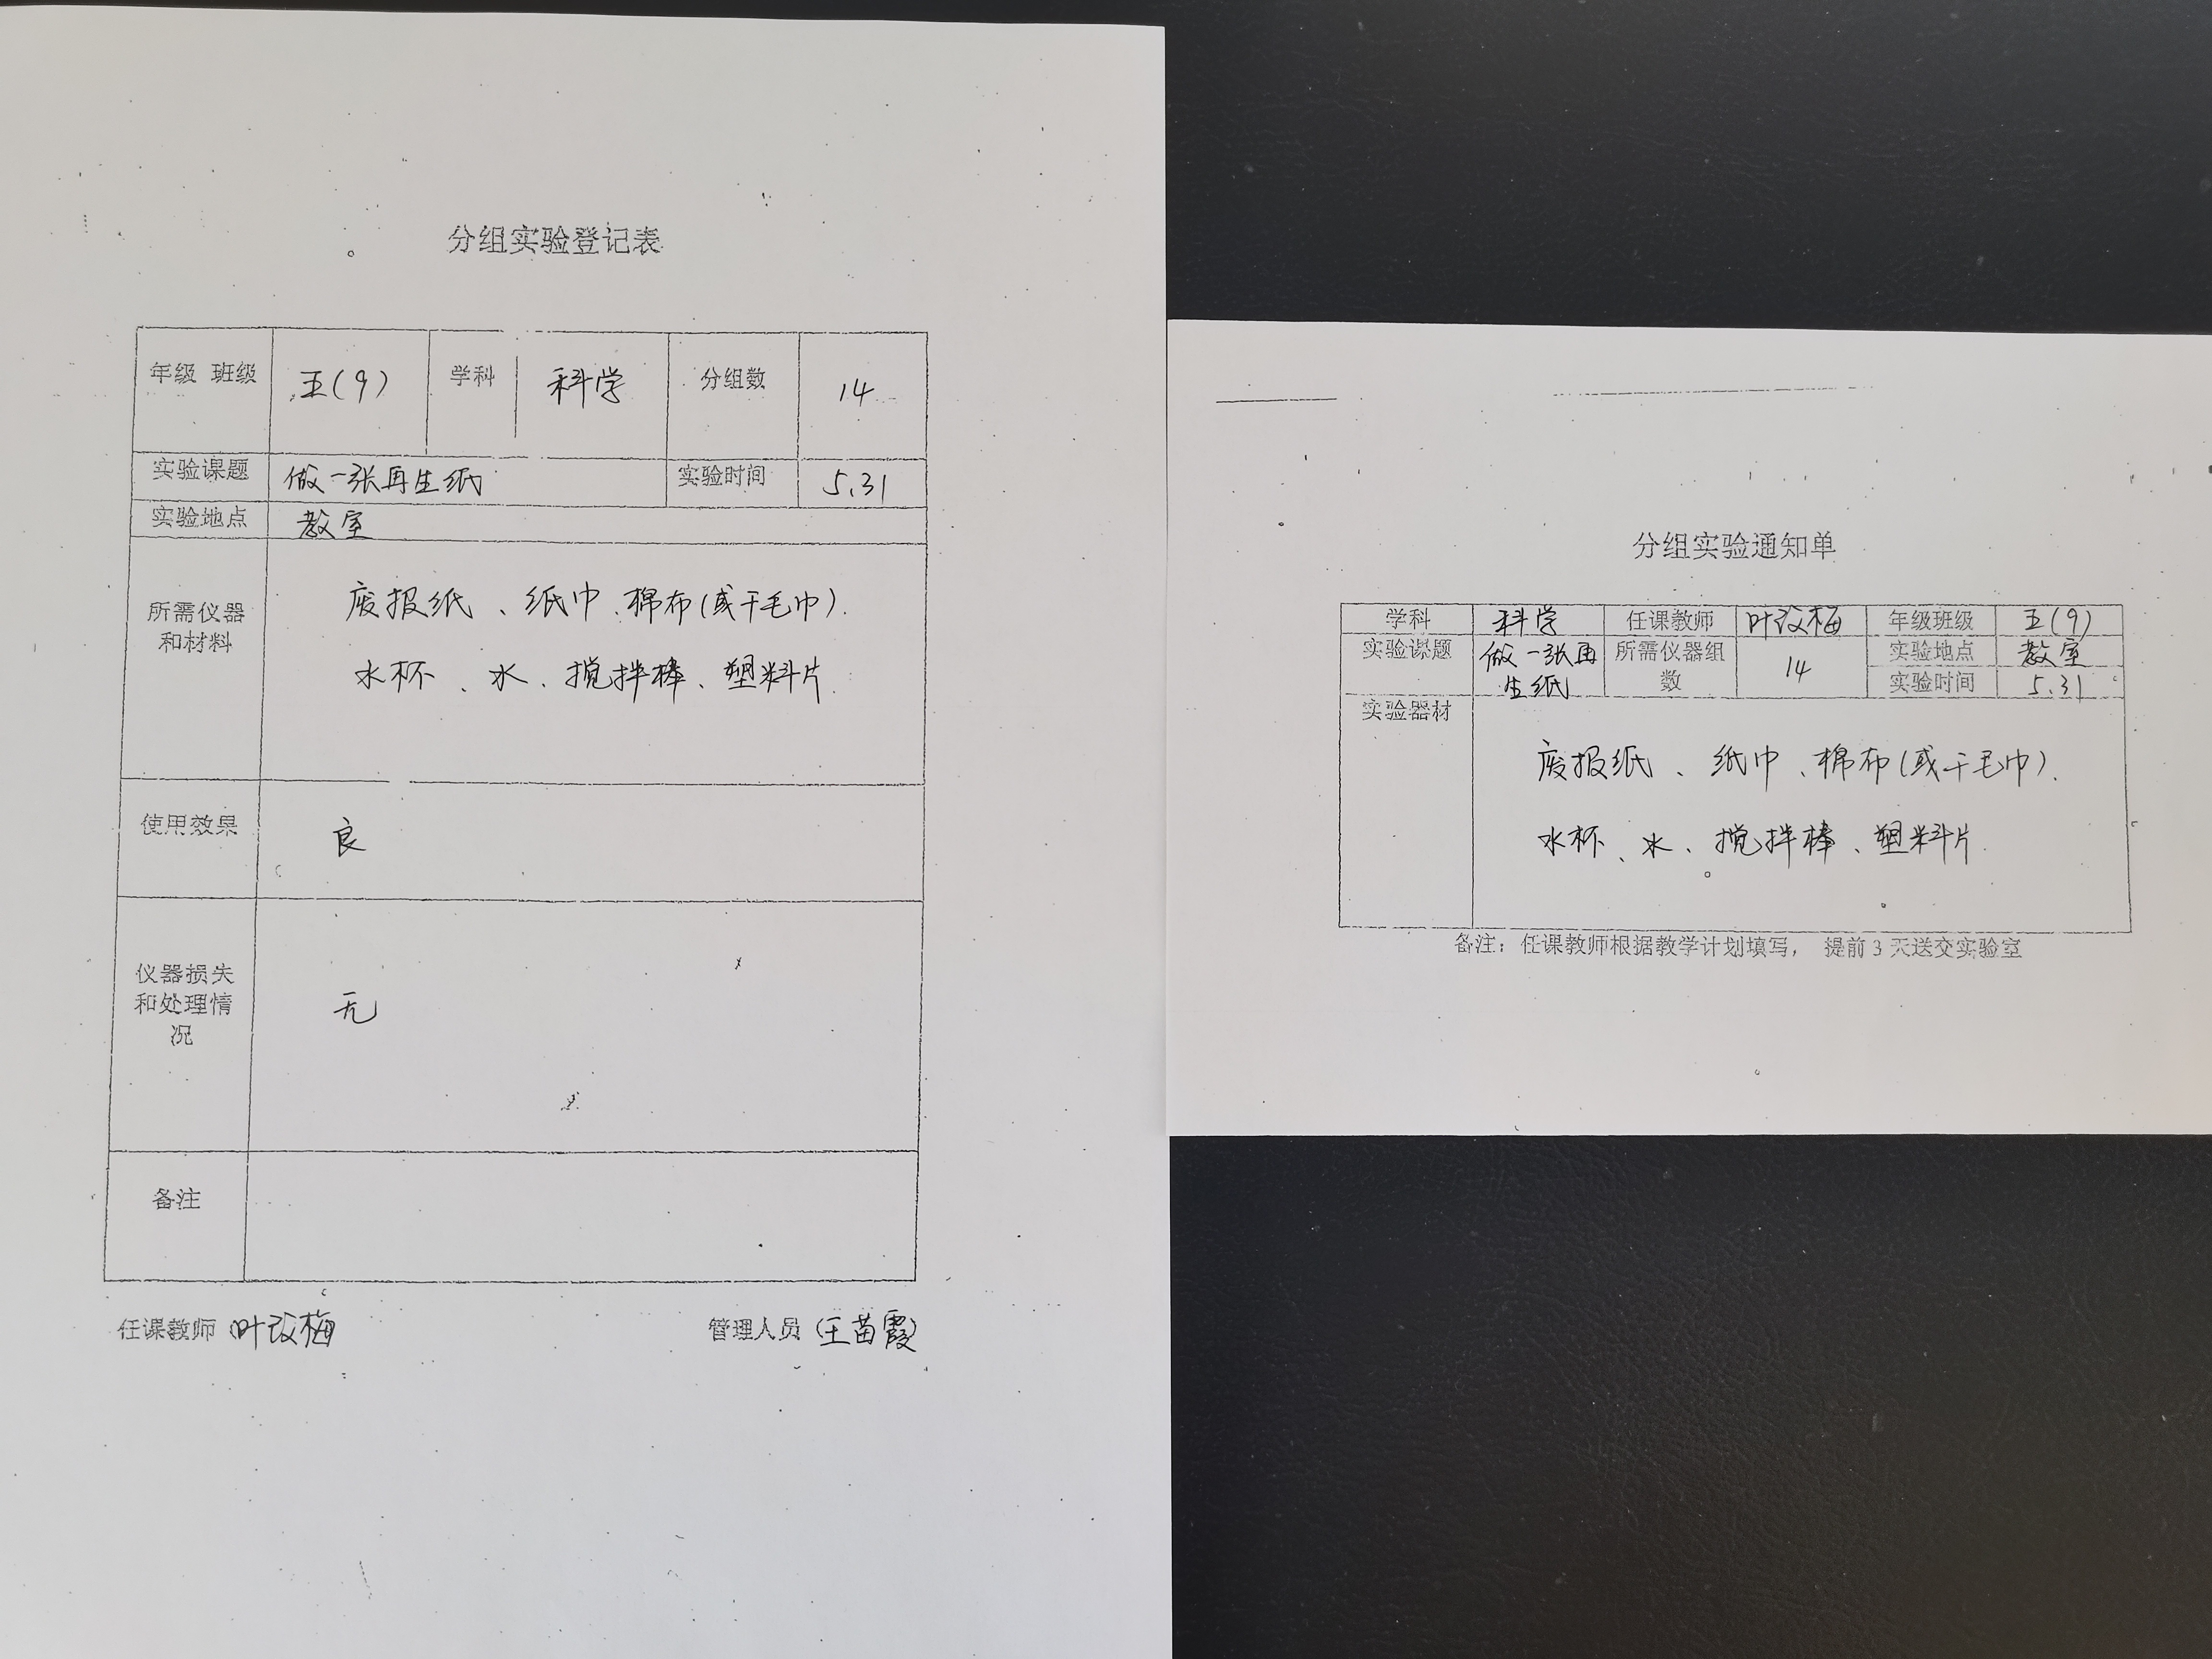 分组实验登记表
年级 班级 五(9) 学科 科学 分组数 14
实验课题 做一张再生纸 实验时间 5.31
实验地点 教室
所需仪器
和材料
废报纸、纸巾、棉布(或干毛巾).
水杯、水、搅拌棒、塑料片.
使用效果 良
仪器损失
和处理情
况
无
备注
任课教师 叶改梅 管理人员 王苗霞
分组实验通知单
学科 科学 任课教师 叶改梅 年级班级 五(9)
实验课题 做一张再
生纸
所需仪器组
数
14
实验地点 教室
实验时间 5.31
实验器材
废报纸、纸巾、棉布(或干毛巾).
水杯、水、搅拌棒、塑料片.
备注：任课教师根据教学计划填写， 提前3天送交实验室